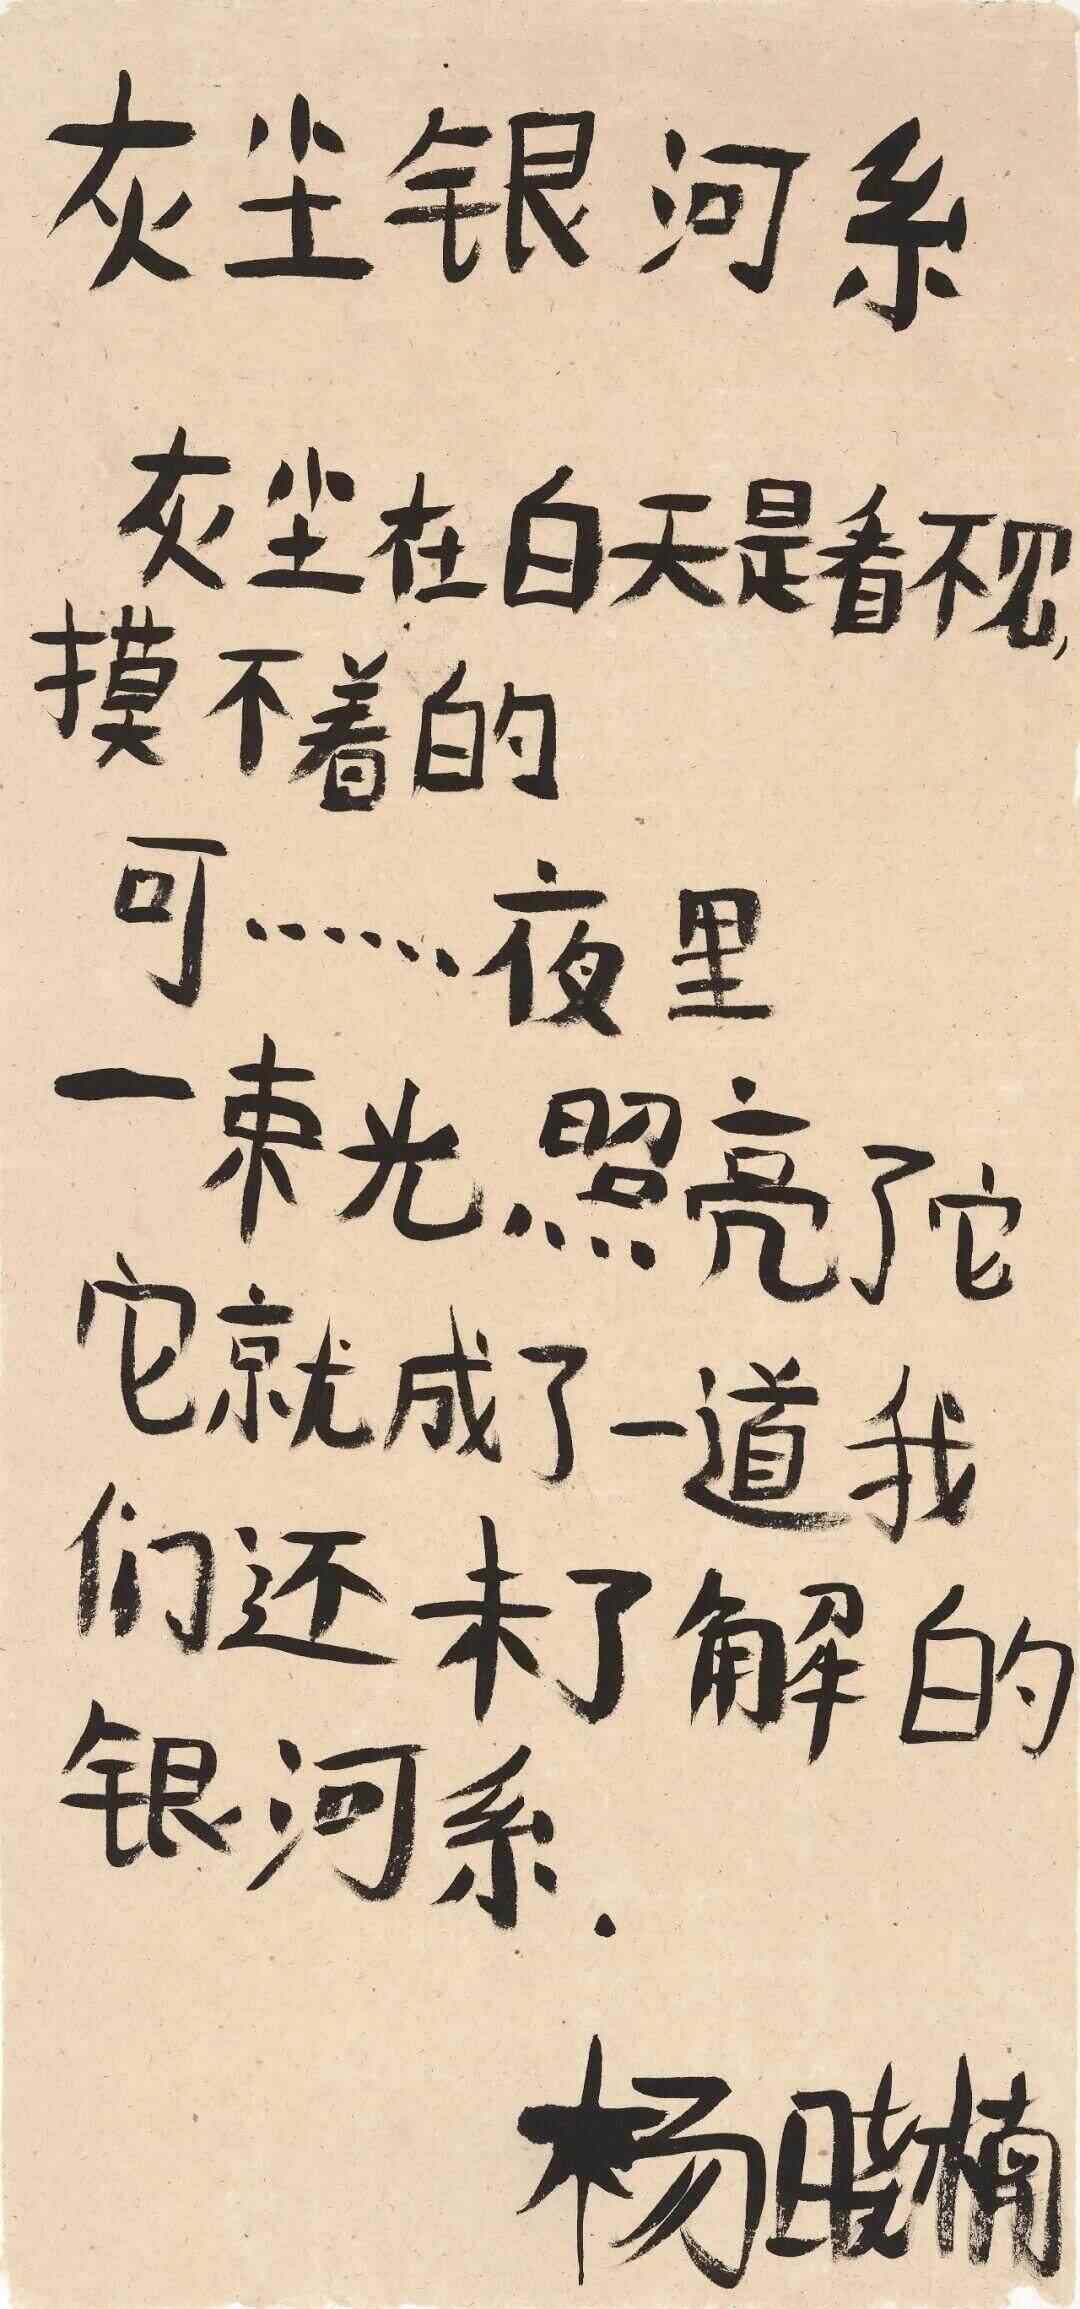 灰尘银河系
灰尘在白天是看不见,
摸不着的
可……夜里
一束光照亮了它
它就成了一道我
们还未了解的
银河系.
杨晓楠